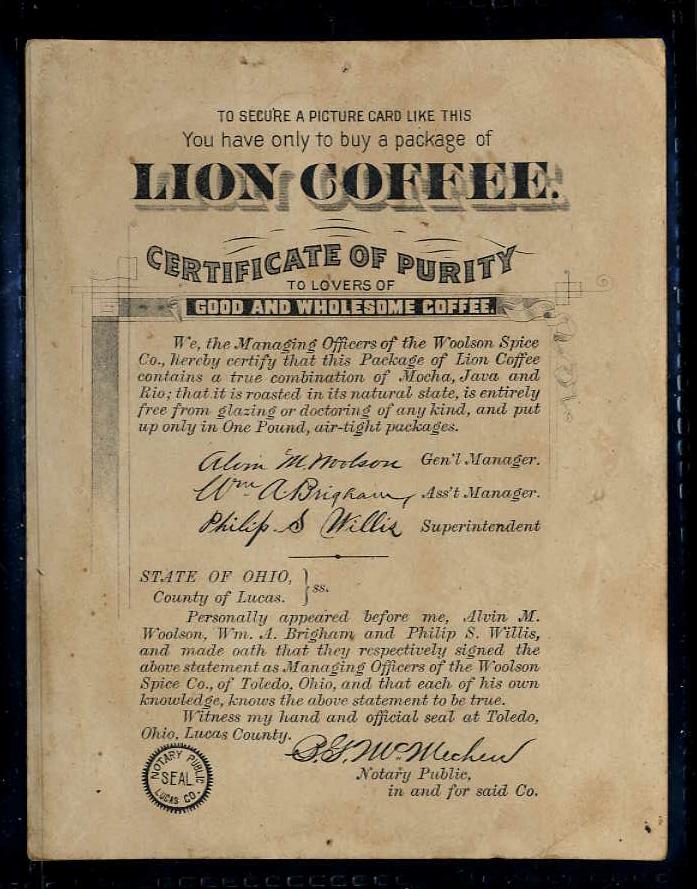 TO SECURE A PICTURE CARD LIKE THIS
You have only to buy a package of
LION COFFEE.
CERTIFICATE OF PURITY
TO LOVERS OF
GOOD AND WHOLESOME COFFEE.
We, the Managing Officers of the Woolson Spice
Co., hereby certify that this Package of Lion Coffee
contains a true combination of Mocha, Java and
Rio; that it is roasted in its natural state, is entirely
free from glazing or doctoring of any kind, and put
up only in One Pound, air-tight packages.
Alvin M. Woolson Gen'l Manager.
Wm A Brigham, Ass't Manager.
Philip S Willis Superintendent
STATE OF OHIO, } ss.
County of Lucas.
Personally appeared before me, Alvin M.
Woolson, Wm. A. Brigham and Philip S. Willis,
and made oath that they respectively signed the
above statement as Managing Officers of the Woolson
Spice Co., of Toledo, Ohio, and that each of his own
knowledge, knows the above statement to be true.
Witness my hand and official seal at Toledo,
Ohio, Lucas County.
McMechen
Notary Public,
in and for said Co.
NOTARY PUBLIC
SEAL
LUCAS CO.